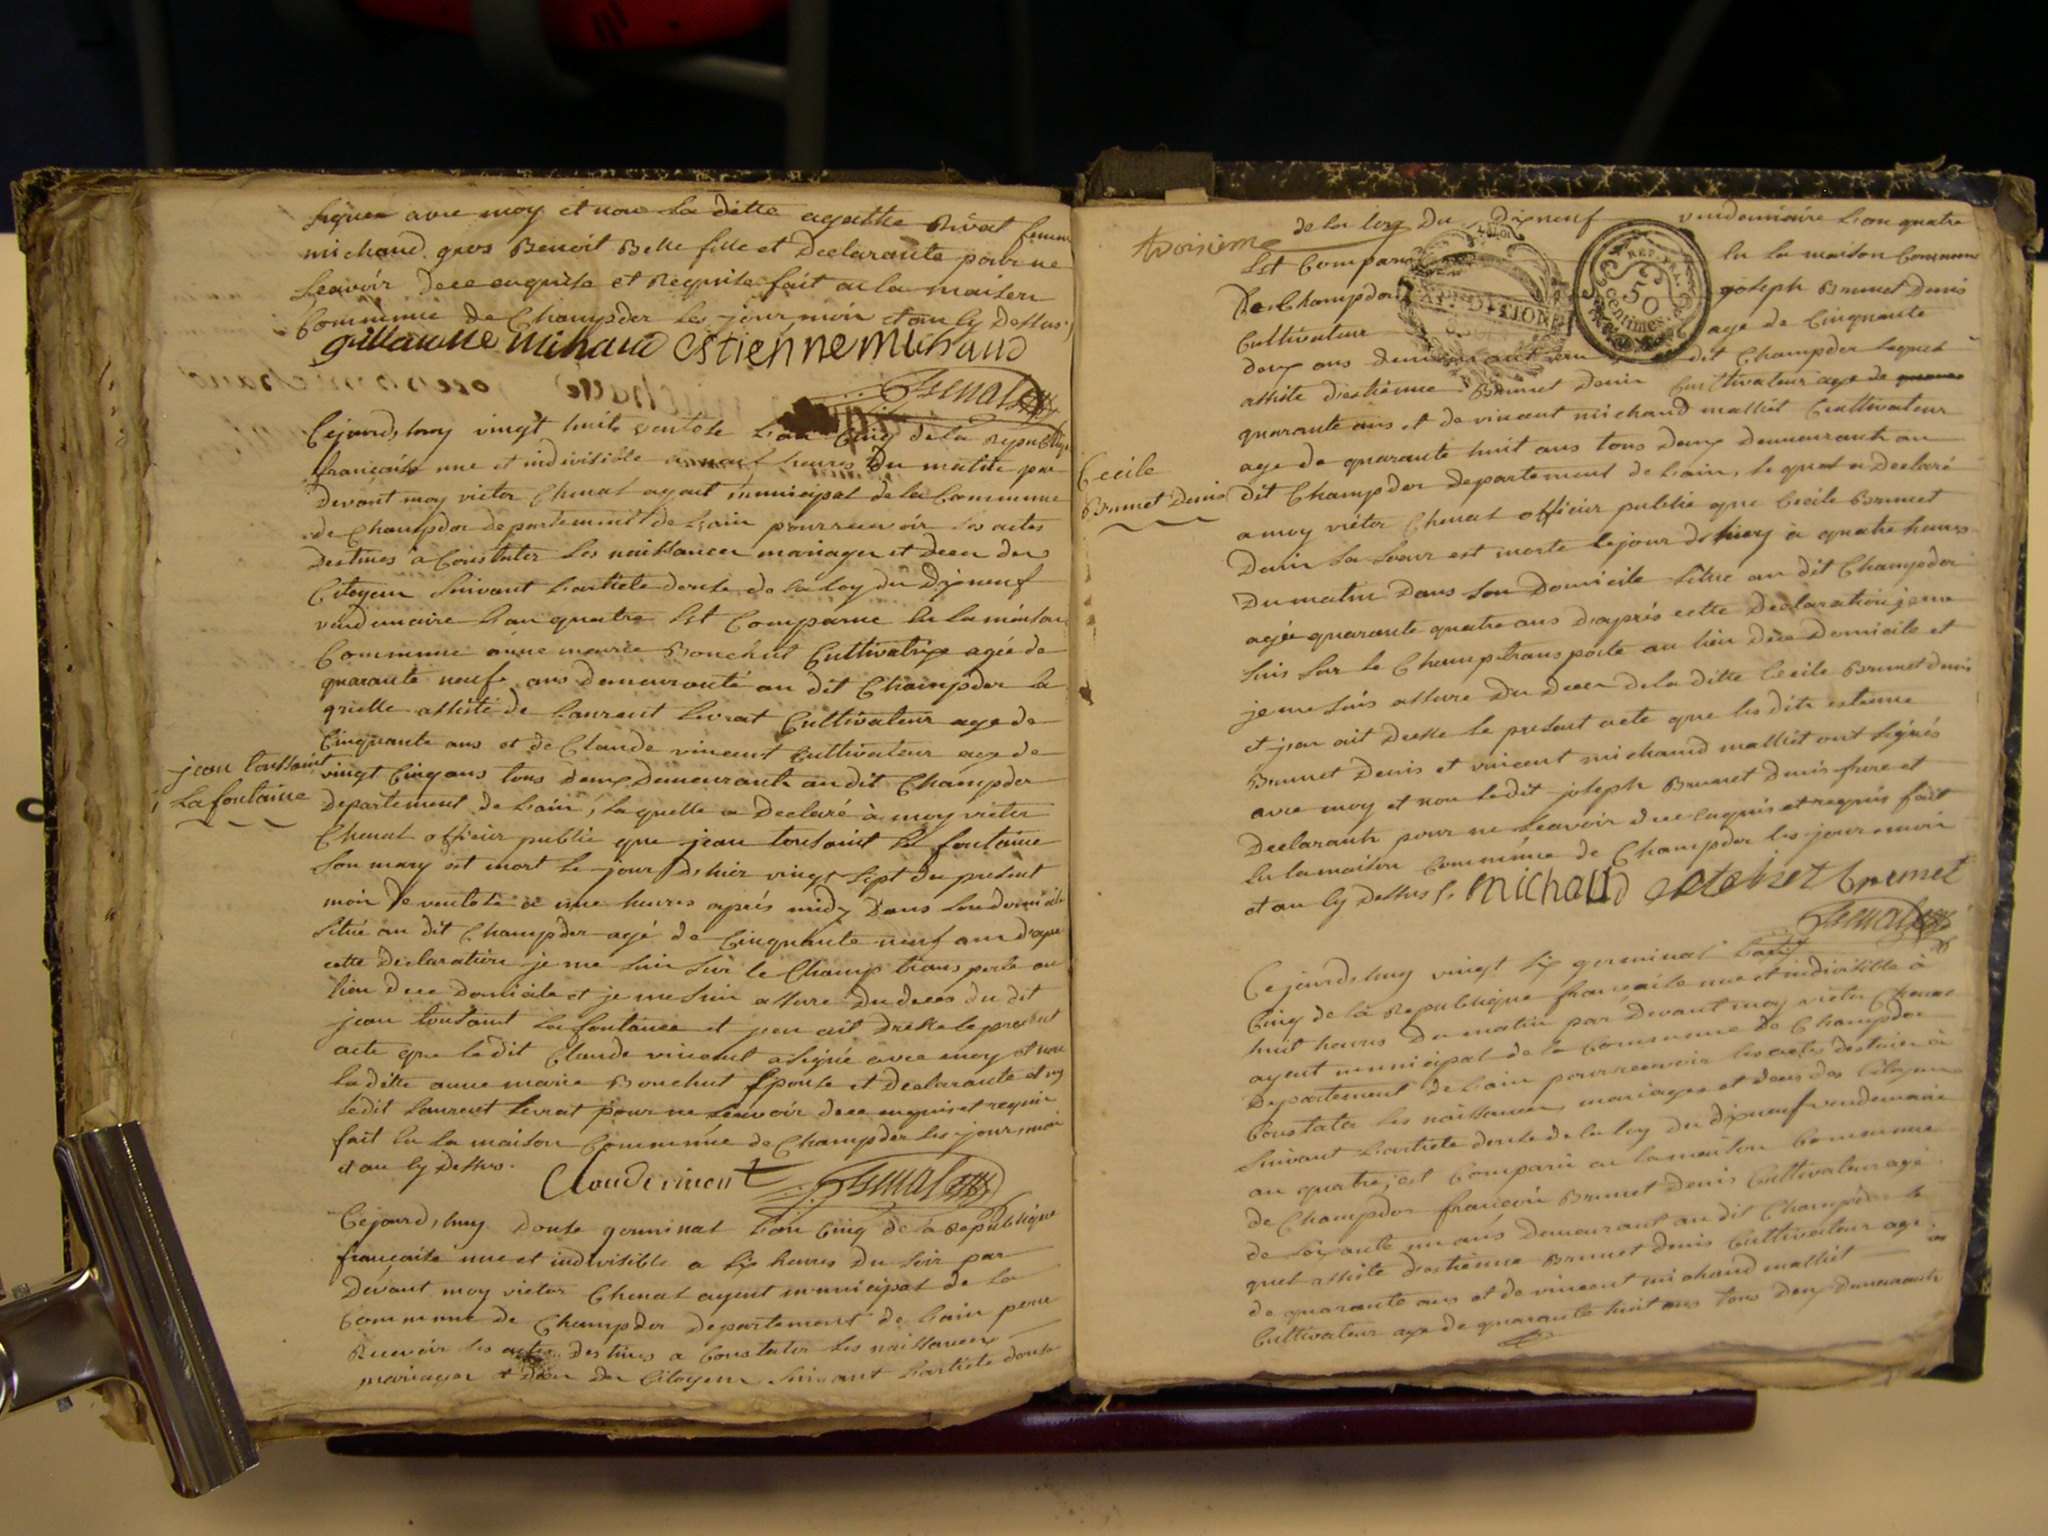 signes avec moy et non la ditte agathe Rivat femme
michaud gros Benoit Belle fille et Declarante pour ne
scavoir de ce enquise et Requise fait a la maison
Commune de Champdor les jour mois et an cy Dessus
guillaume michaud estienne michaud
Chenal
Cejourdshuy vingt huit ventose L'an Cinq de la Republique
françaisse une et indivisible a neuf heures Du matin par
Devant moy victor Chenal agent municipal de la Commune
de Champdor departement de L'ain pour recevoir les actes
Destines a Constater Les naissances mariages et Deces des
Citoyens Suivant L'article douse de la loy du Dixneuf
vendemiaire L'an quatre Est Comparue En la maison
Commune anne marie Bonchut Cultivatrixe agée de
quarante neuf ans demeurante au dit Champdor la
quelle assisté de Laurent Livrat Cultivateur age de
Cinquante ans et de Claude vincent Cultivateur age de
jean toussaint
La fontaine
vingt Cinq ans tous deux Demeurants au dit Champdor
departement de L'ain, la quelle a Declaré à moy victor
Chenal officier public que jean tousaint La fontaine
Son mary est mort le jour Dshier vingt Sept du present
mois De ventose a une heures après midy Dans Son domicile
Situé au dit Champdor agé de Cinquante neuf ans D'après
cette declaration je me Suis Sur le Champ transporte au
lieu de ce Domicile et je me Suis assure Du deces du dit
jean tousaint La fontaine et j'en ait Dresse le present
acte que le dit Claude vincent a Signé avec moy et non
la ditte anne marie Bonchut Epouse et Declarante et ny
le dit Laurent Livrat pour ne Scavoir de ce enquis et requis
fait En la maison Commune de Champdor les jour, mois
et an cy Dessus.
Claude vincent Chenal
Cejourdshuy Douse germinal L'an Cinq de la Republique
française une et indivisible a Six heures Du Soir par
Devant moy victor Chenal agent municipal de la
Commune de Champdor departement de L'ain pour
Recevoir les actes Destines a Constater Les naissances
mariages et Deces des Citoyens Suivant L'article douse
troisieme
de la loy Du Dixneuf vendemiaire L'an quatre
REP. FRA.
50
Centimes
Est Comparu En la maison Commune
De Champdor joseph Brunet Denis
Cultivateur age de Cinquante
deux ans Demeurant au dit Champdor lequel
assiste d'estienne Brunet Denis Cultivateur age de
quarante ans et de vincent michaud malliet Cultivateur
age de quarante huit ans tous deux demeurants au
Cecile
Brunet Denis
dit Champdor departement de L'ain, le quel a Declaré
a moy victor Chenal officier public que Cecile Brunet
Denis Sa Soeur est morte le jour dshiery à quatre heures
Du matin Dans Son Domicile Situé au dit Champdor
agée quarante quatre ans D'après cette Declaration je me
Suis Sur le Champ transporte au lieu de ce Domicile et
je me Suis assure Du Deces de la Ditte Cecile Brunet denis
et j'en ait Dresse le present acte que les dits estienne
Brunet Denis et vincent michaud malliet ont Signés
avec moy et non le dit joseph Brunet Denis frere et
Declarant pour ne Scavoir de ce enquis et requis fait
En la maison Commune de Champdor les jour mois
et an cy Dessus michaud brunet
Chenal
Cejourdshuy vingt Six germinal L'an
Cinq de la Republique française une et indivisible à
huit heures Du matin par Devant moy victor Chenal
agent municipal de la Commune de Champdor
Departement de L'ain pour recevoir les actes destinés à
Constater Les naissances, mariages et deces des Citoyens
Suivant L'article douse de la loy du Dixneuf vendemiaire
an quatre, est Comparu a la maison Commune
de Champdor françois Brunet Denis Cultivateur agé
de Soixante un ans Demeurant au dit Champdor le
quel assiste d'estienne Brunet denis Cultivateur age
de quarante ans et de vincent michaud malliet
Cultivateur age de quarante huit ans tous deux Demeurants